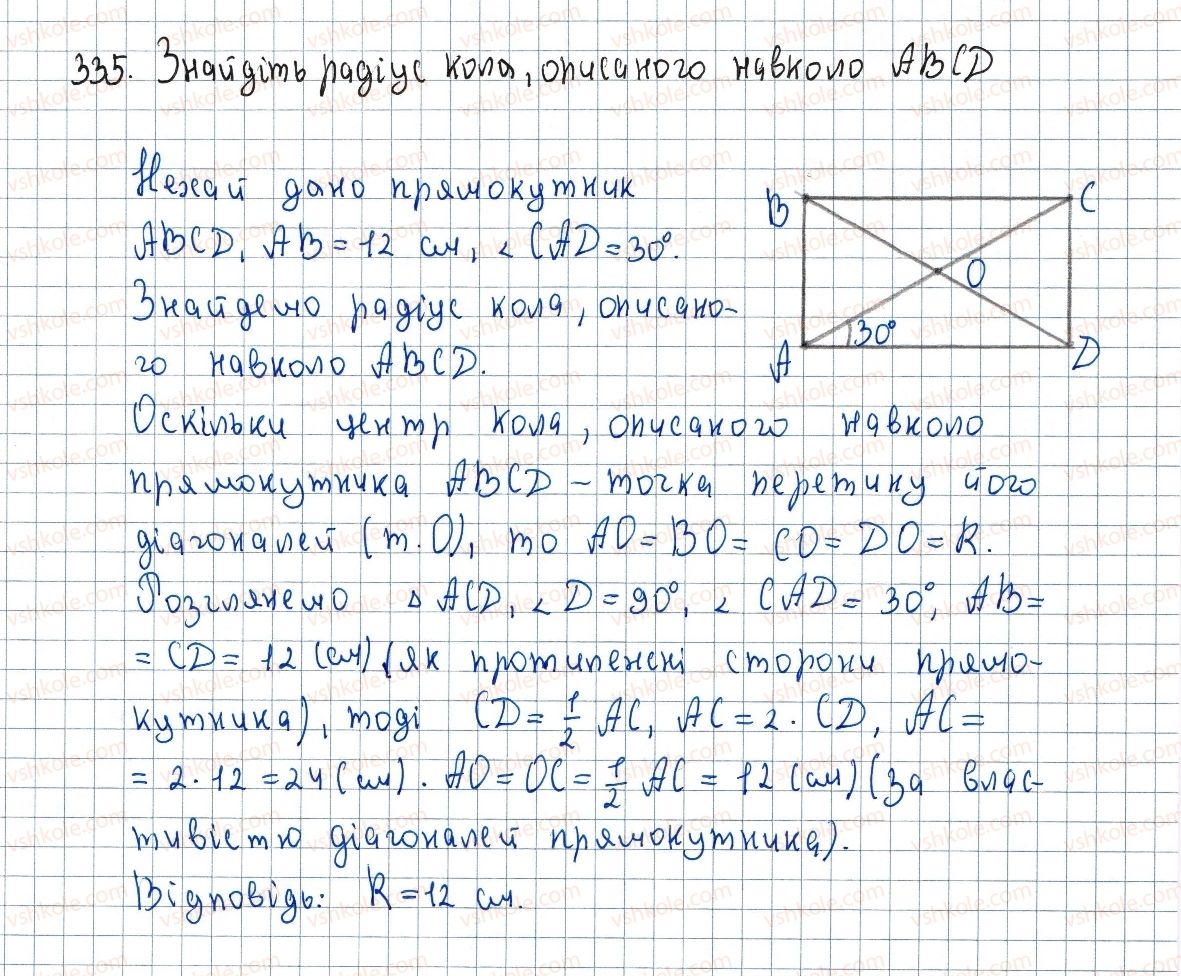 335. Знайдіть радіус кола, описаного навколо ABCD
Нехай дано прямокутник
ABCD, AB = 12 см, ∠ CAD = 30°.
Знайдемо радіус кола, описано-
го навколо ABCD.
B
C
O
30°
A
D
Оскільки центр кола, описаного навколо
прямокутника ABCD – точка перетину його
діагоналей (т. O), то AO = BO = CO = DO = R.
Розглянемо Δ ACD, ∠ D = 90°, ∠ CAD = 30°, AB =
= CD = 12 (см) (як протилежні сторони прямо-
кутника), тоді CD = 1/2 AC, AC = 2 · CD, AC =
= 2 · 12 = 24 (см). AO = OC = 1/2 AC = 12 (см) (за влас-
тивістю діагоналей прямокутника).
Відповідь: R = 12 см.
vshkole.com